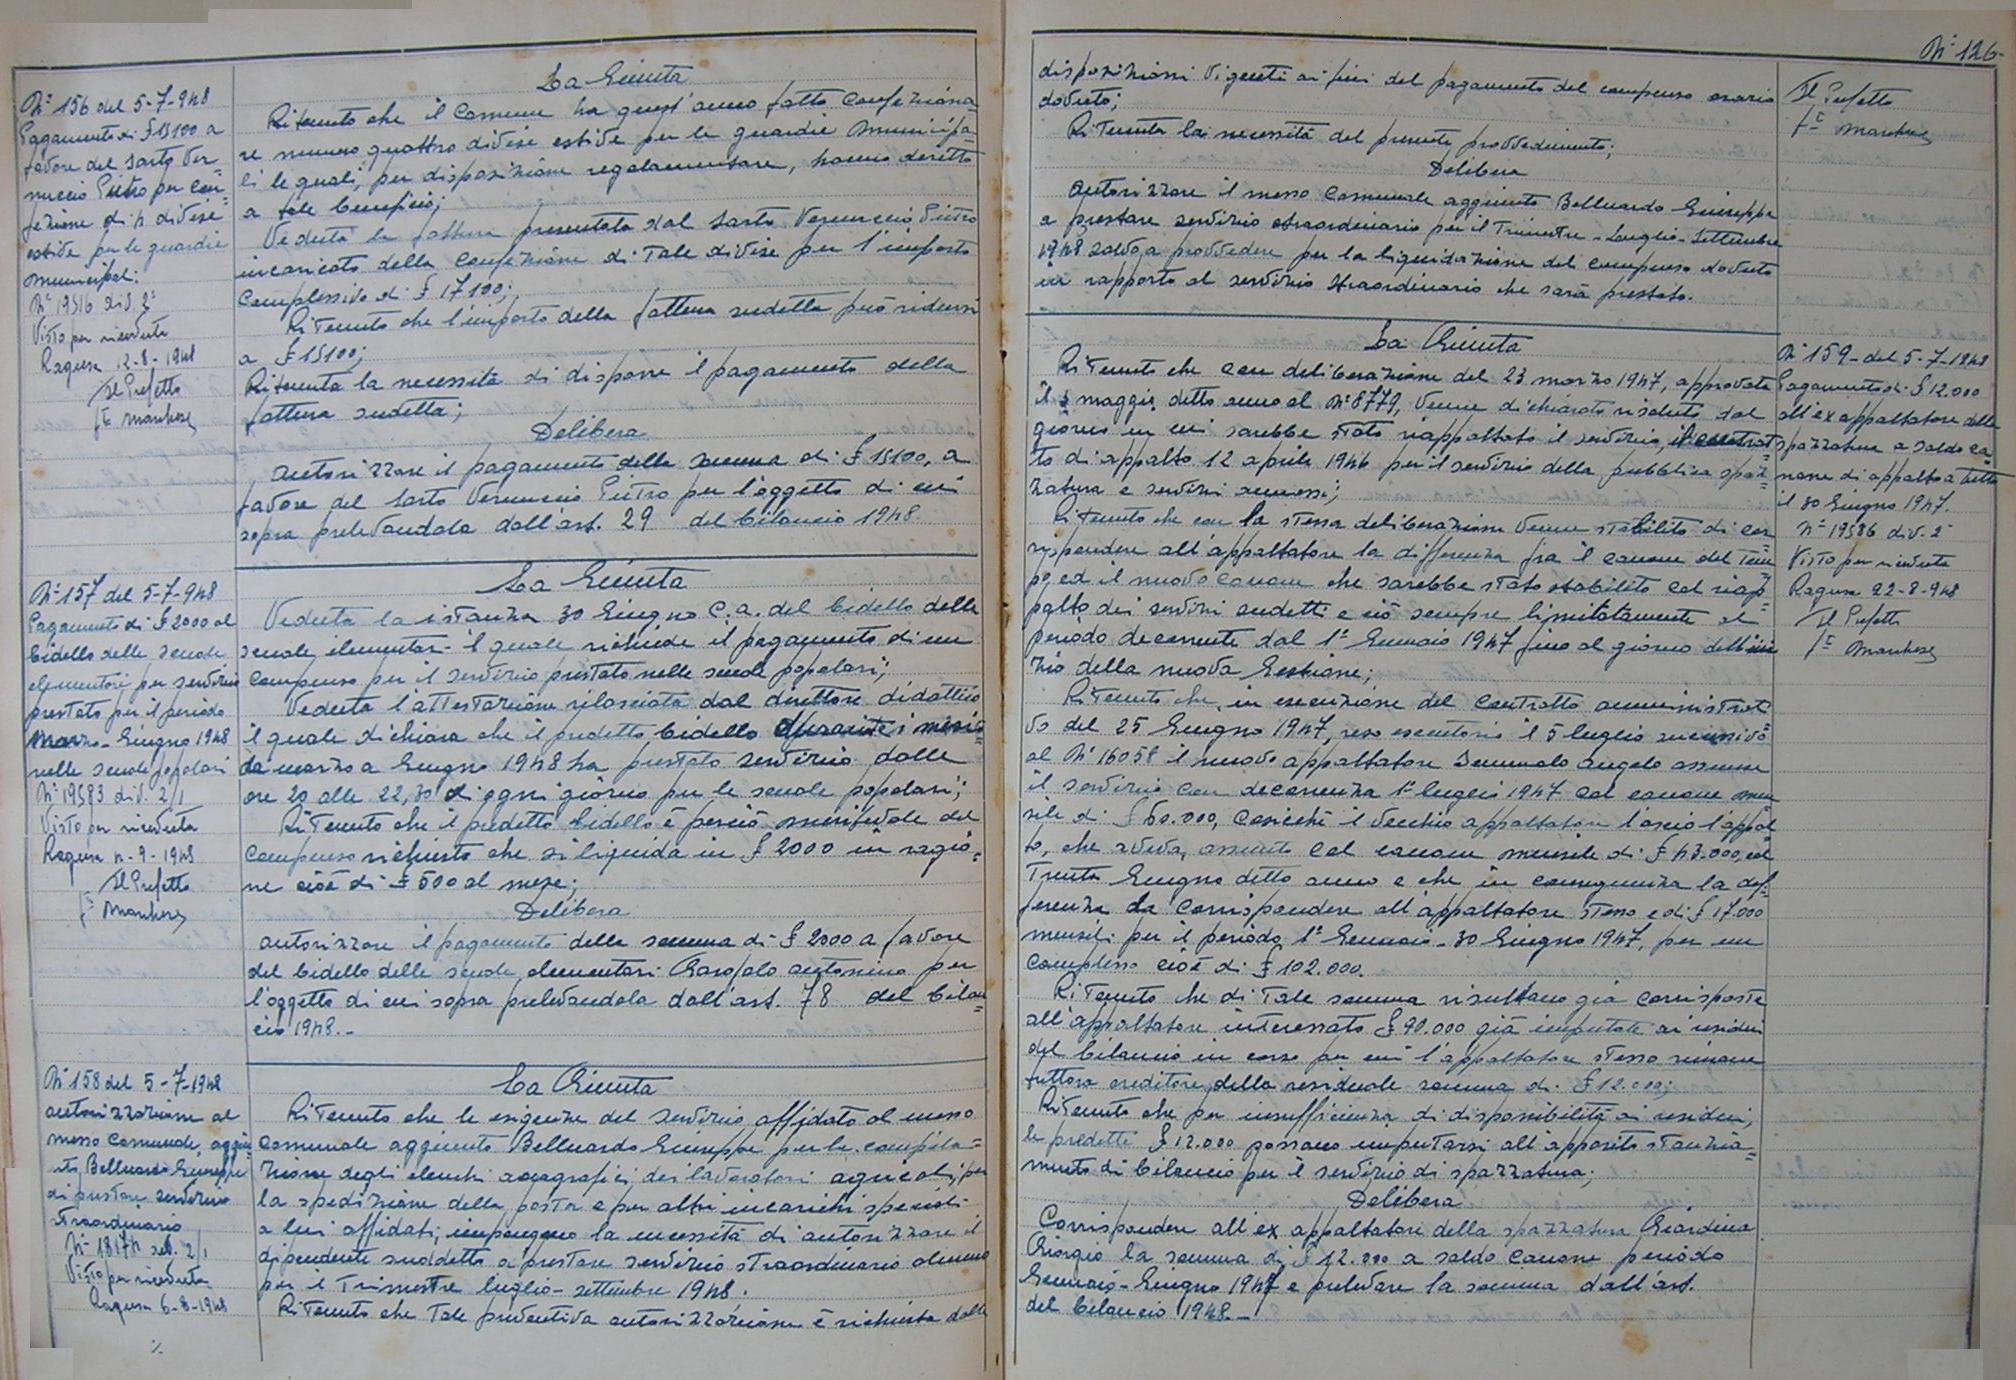 N° 156 del 5-7-948
Pagamento di £ 15100 a
favore del sarto Ver=
nuccio Pietro per con=
fezione di n divise
estive per le guardie
municipali:
N° 19516 div. 2ª
Visto per ricevuta
Ragusa 12-8-1948
Il Prefetto
F° Marchese
La Giunta
Ritenuto che il Comune ha quest'anno fatto confeziona=
re numero quattro divise estive per le guardie municipa=
li le quali, per disposizione regolamentare, hanno diritto
a tale beneficio;
Veduta la fattura presentata dal sarto Vernuccio Pietro
incaricato della confezione di tale divise per l'importo
complessivo di £ 17100;
Ritenuto che l'importo della fattura sudetta può ridursi
a £ 15100;
Ritenuta la necessità di disporre il pagamento della
fattura sudetta;
Delibera
autorizzare il pagamento della somma di £ 15100, a
favore del sarto Vernuccio Pietro per l'oggetto di cui
sopra prelevandola dall'art. 29 del bilancio 1948.
N° 157 del 5-7-948
Pagamento di £ 2000 al
bidello delle scuole
elementari per servizio
prestato per il periodo
Marzo-Giugno 1948
nelle scuole popolari
N° 19583 div. 2/1
Visto per ricevuta
Ragusa n-9-1948
Il Prefetto
F° Marchese
La Giunta
Veduta la istanza 30 Giugno c.a. del bidello delle
scuole elementari il quale richiede il pagamento di un
compenso per il servizio prestato nelle scuole popolari;
Veduta l'attestazione rilasciata dal direttore didattico
il quale dichiara che il predetto bidello durante i mesi
da marzo a Giugno 1948 ha prestato servizio dalle
ore 20 alle 22,30 di ogni giorno per le scuole popolari;
Ritenuto che il predetto bidello è perciò meritevole del
compenso richiesto che si liquida in £ 2000 in ragio=
ne cioè di £ 500 al mese;
Delibera
autorizzare il pagamento della somma di £ 2000 a favore
del bidello delle scuole elementari Garofalo Antonino per
l'oggetto di cui sopra prelevandola dall'art. 78 del bilan=
cio 1948.-
N° 158 del 5-7-1948
autorizzazione al
messo comunale, aggiu=
nto Belluardo Giuseppe
di prestare servizio
straordinario
N° 1817n div. 2/1
Visto per ricevuta
Ragusa 6-8-1948
%
La Giunta
Ritenuto che le esigenze del servizio affidato al messo
comunale aggiunto Belluardo Giuseppe per la compila=
zione degli elenchi anagrafici dei lavoratori agricoli, per
la spedizione della posta e per altri incarichi speciali
a lui affidati, impongono la necessità di autorizzare il
dipendente suddetto a prestare servizio straordinario almeno
per il trimestre luglio-settembre 1948.
Ritenuto che tale preventiva autorizzazione è richiesta dalle
N° 126-
disposizioni vigenti ai fini del pagamento del compenso orario
dovuto;
Ritenuta la necessità del presente provvedimento;
Delibera
autorizzare il messo comunale aggiunto Belluardo Giuseppe
a prestare servizio straordinario per il Trimestre-Luglio-Settembre
1948 salvo a provvedere per la liquidazione del compenso dovuto
in rapporto al servizio straordinario che sarà prestato.
Il Prefetto
F° Marchese
La Giunta
Ritenuto che con deliberazione del 23 marzo 1947, approvata
il 3 maggio detto anno al N° 8779, venne dichiarato risoluto dal
giorno in cui sarebbe stato riappaltato il servizio, il contrat=
to di appalto 12 aprile 1946 per il servizio della pubblica spaz=
zatura e servizi annessi;
Ritenuto che con la stessa deliberazione venne stabilito di cor=
rispondere all'appaltatore la differenza fra il canone del tem=
po ed il nuovo canone che sarebbe stato stabilito col riap=
palto dei servizi sudetti e ciò sempre limitatamente al
periodo decorrente dal 1° Gennaio 1947 fino al giorno dell'ini=
zio della nuova Gestione;
Ritenuto che, in esecuzione del contratto amministrati=
vo del 25 Giugno 1947, reso esecutorio il 5 luglio successivo
al N° 16058 il nuovo appaltatore Iemmolo Angelo assunse
il servizio con decorrenza 1° luglio 1947 col canone men=
sile di £ 60.000, cosicchè il vecchio appaltatore lasciò l'appal=
to, che aveva, assunto col canone mensile di £ 43.000, col
Trenta Giugno detto anno e che in conseguenza la dif=
ferenza da corrispondere all'appaltatore stesso è di £ 17.000
mensili per il periodo 1° Gennaio-30 Giugno 1947, per un
complesso cioè di £ 102.000.
Ritenuto che di tale somma risultano già corrisposte
all'appaltatore interessato £ 90.000 già imputate ai residui
del bilancio in corso per cui l'appaltatore stesso rimane
tuttora creditore della residuale somma di £ 12.000;
Ritenuto che per insufficienza di disponibilità ai residui,
le predette £ 12.000 possono imputarsi all'apposito stanzia=
mento di bilancio per il servizio di spazzatura;
Delibera
Corrispondere all'ex appaltatore della spazzatura Giardina
Giorgio la somma di £ 12.000 a saldo canone periodo
Gennaio-Giugno 1947 e prelevare la somma dall'art.
del bilancio 1948.-
N° 159-del 5-7-1948
Pagamento di £ 12.000
all'ex appaltatore della
spazzatura a saldo ca=
none di appalto a tutto
il 30 Giugno 1947.
N° 19586 div. 2ª
Visto per ricevuta
Ragusa 22-8-948
Il Prefetto
F° Marchese